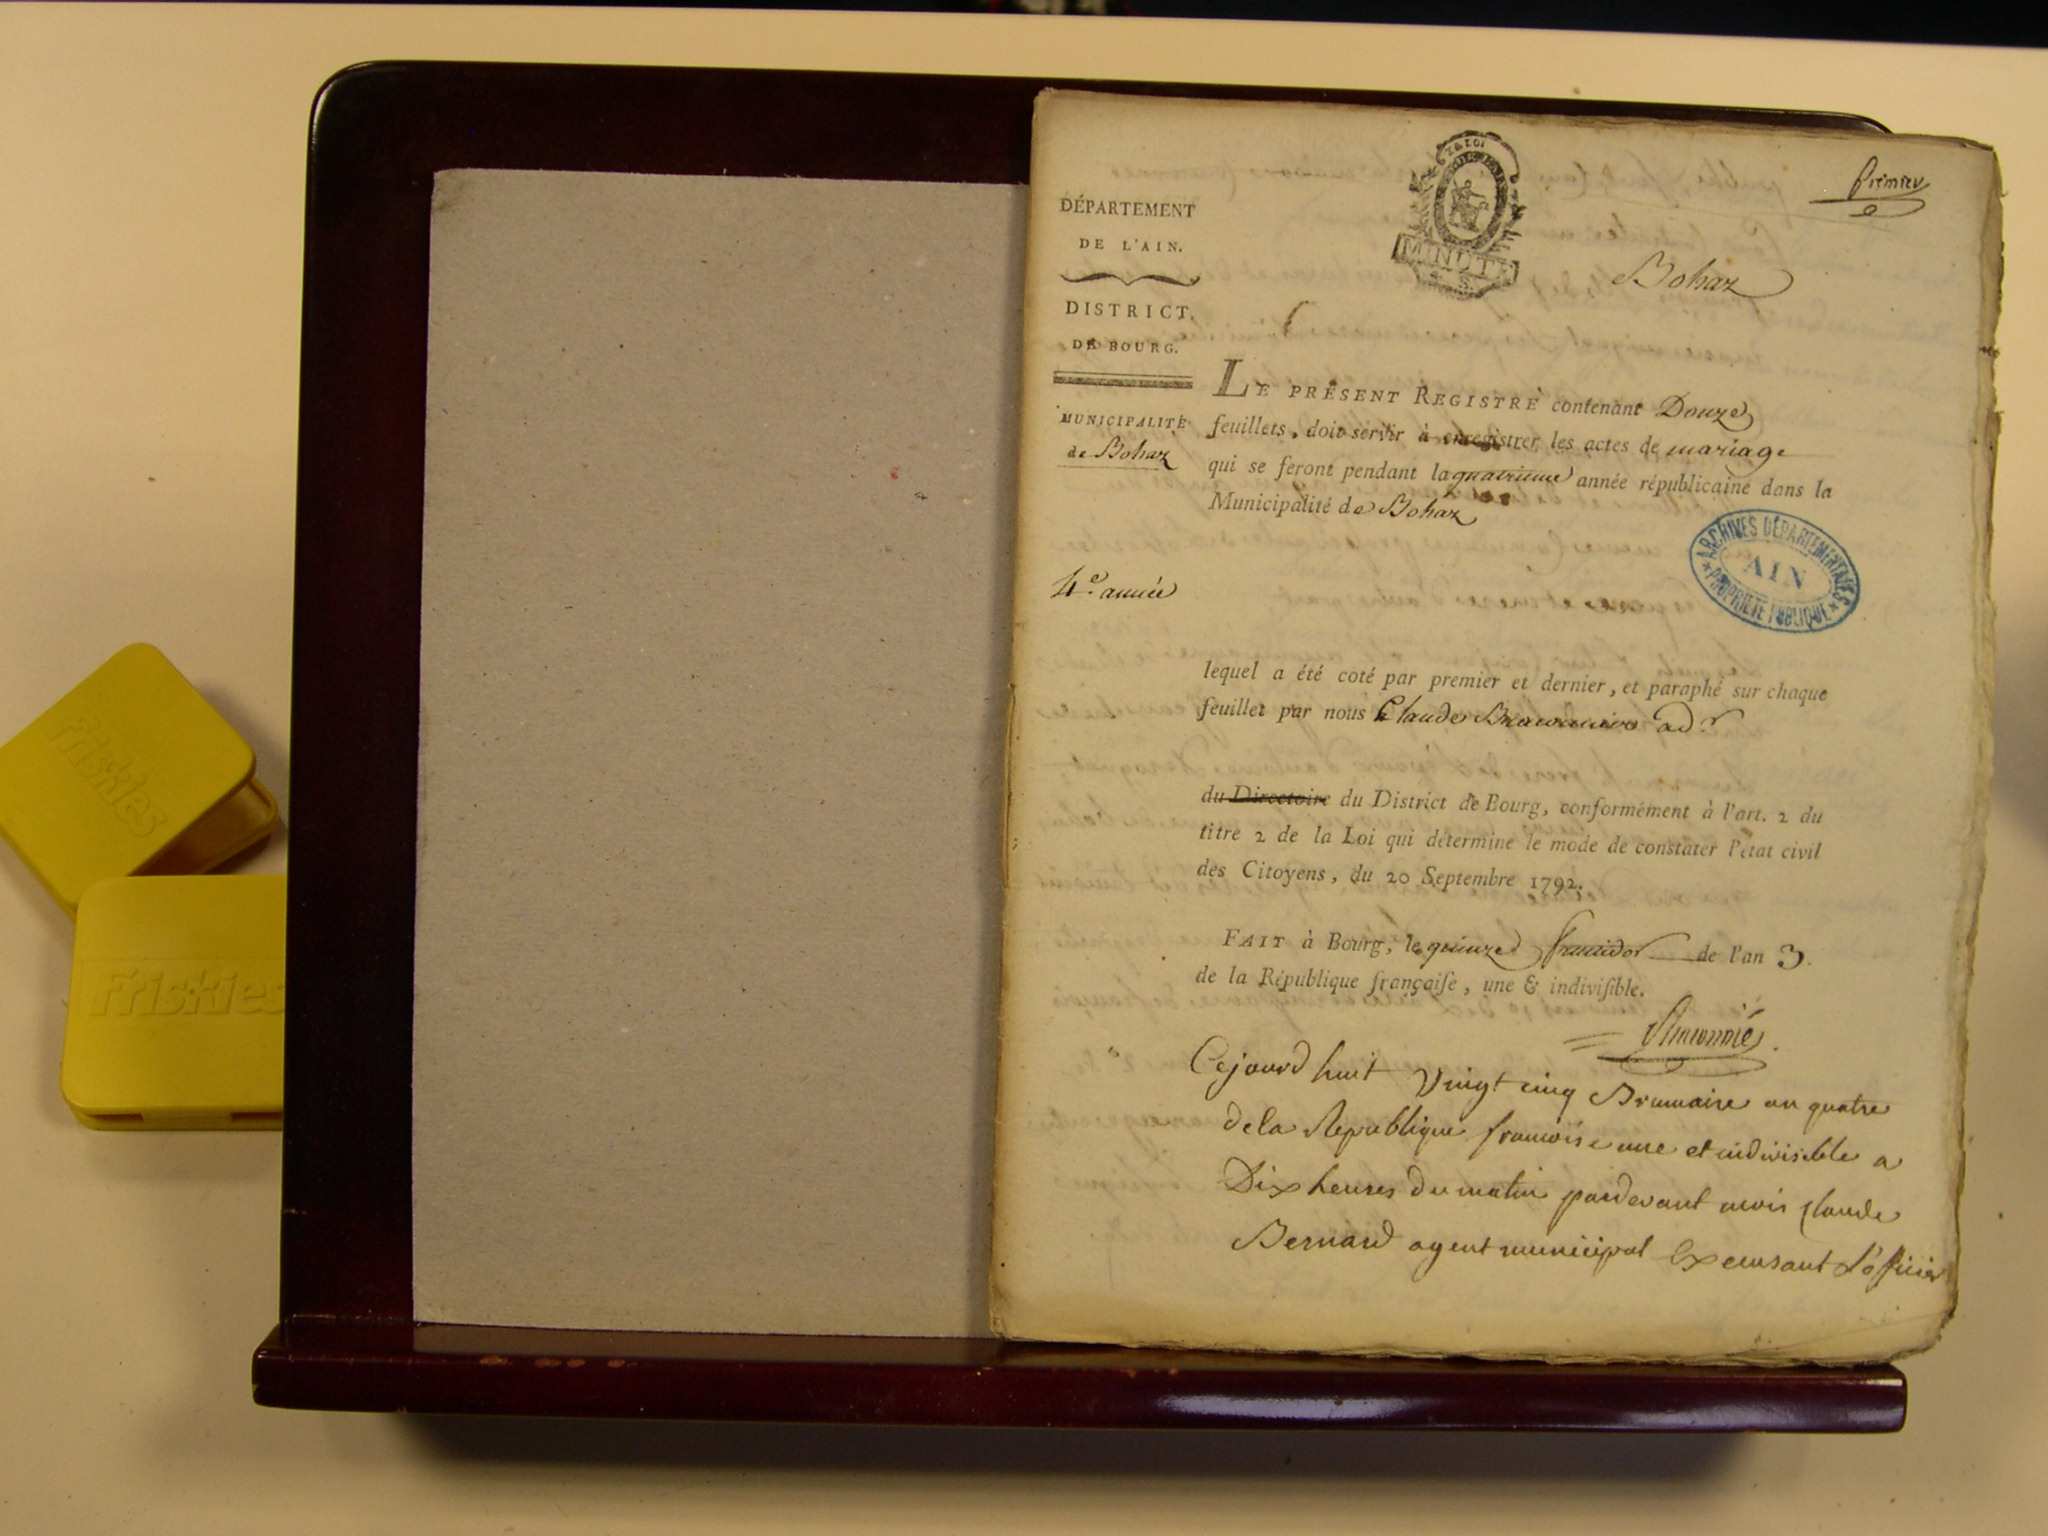 Premier
LA LOI
MINUTE
4. S.
DÉPARTEMENT
DE L'AIN.
Bohaz
DISTRICT.
DE BOURG.
MUNICIPALITÉ
de Bohaz
LE PRÉSENT REGISTRE contenant Douze
feuillets, doit servir à enregistrer les actes de mariage
qui se feront pendant la quatrieme année républicaine dans la
Municipalité de Bohaz
ARCHIVES DÉPARTEMENTALES
AIN
PROPRIÉTÉ PUBLIQUE
4e. année
lequel a été coté par premier et dernier, et paraphé sur chaque
feuillet par nous Claude adr.
du Directoire du District de Bourg, conformément à l'art. 2 du
titre 2 de la Loi qui détermine le mode de constater l'état civil
des Citoyens, du 20 Septembre 1792.
FAIT à Bourg, le quinze fructidor de l'an 3.
de la République françaiſe, une & indiviſible.
Cejourd huit vingt cinq Brumaire an quatre
de la Republique francoise une et indivisible a
Dix heures du matin pardevant mois Claude
Bernard agent municipal Exersant L'officier
Friskies
Friskies